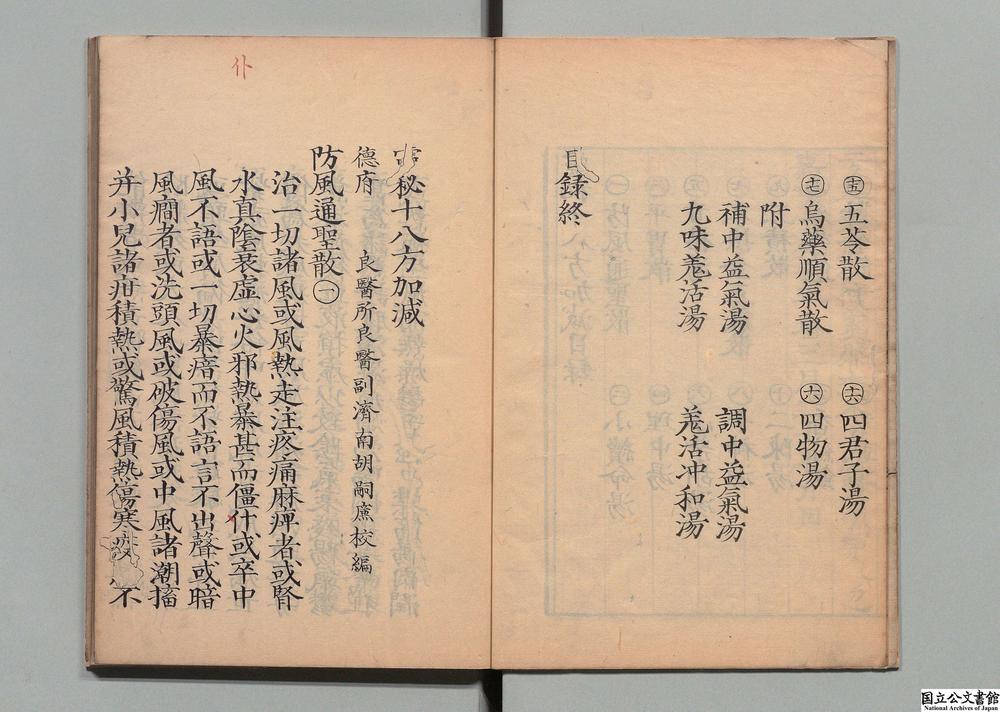 ㊄五苓散　㊅四君子湯
㊆烏藥順氣散　㊇四物湯
附
補中益氣湯　調中益氣湯
九味羗活湯　羗活冲和湯
目録終
仆
秘十八方加減
德府　良醫所良醫副濟南胡嗣廉校編
防風通聖散㊀
治一切諸風或風熱走注疼痛麻痺者或腎
水真陰衰虛心火邪熱暴甚而僵什或卒中
風不語或一切暴瘖而不語言不出聲或暗
風癎者或洗頭風或破傷風或中風諸潮搐
并小兒諸疳積熱或驚風積熱傷寒疫不
国立公文書館
National Archives of Japan